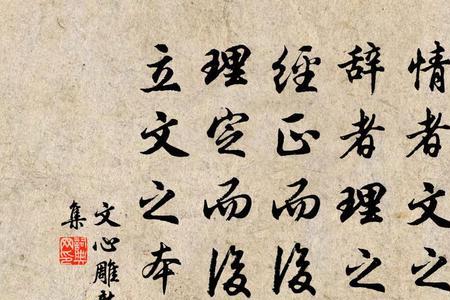 情者文
辞者理之
經正而後
理定而後
立文之本
文心雕
集